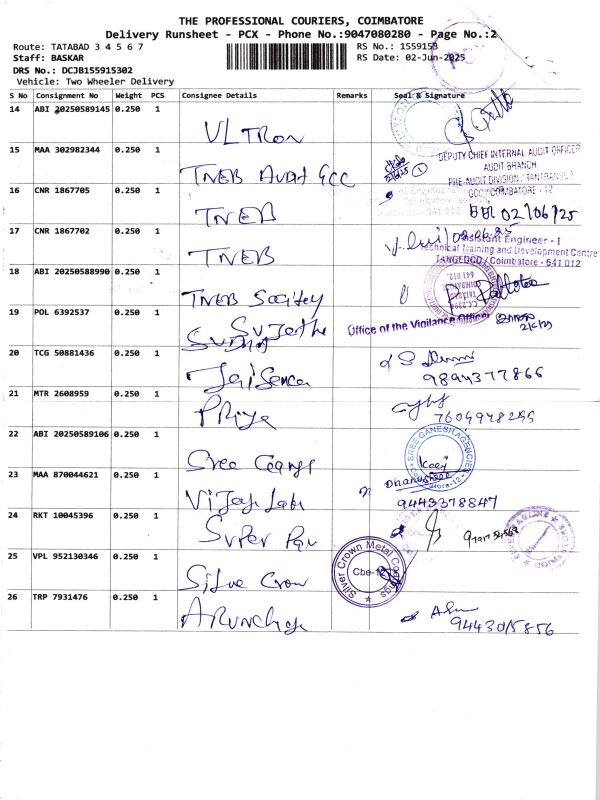 THE PROFESSIONAL COURIERS, COIMBATORE
Delivery Runsheet - PCX - Phone No.:9047080280 - Page No.:2
Route: TATABAD 3 4 5 6 7
RS No.: 1559153
Staff: BASKAR
RS Date: 02-Jun-2025
DRS No.: DCJB155915302
Vehicle: Two Wheeler Delivery
S No Consignment No Weight PCS Consignee Details Remarks Seal & Signature
14 ABI 20250589145 0.250 1
VLTRON
15 MAA 302982344 0.250 1
TNEB Audit GCC
DEPUTY CHIEF INTERNAL AUDIT OFFICER
AUDIT BRANCH
PRE-AUDIT DIVISION / TANTRANSCO
GCC/COIMBATORE - 12
16 CNR 1867705 0.250 1
TNEB
02/06/25
17 CNR 1867702 0.250 1
TNEB
Assistant Engineer - I
Technical Training and Development Centre
TANGEDCO/Coimbatore - 641 012
18 ABI 20250588990 0.250 1
TNEB Society
19 POL 6392537 0.250 1
Sujatha
Office of the Vigilance Officer
20 TCG 50881436 0.250 1
Jaisence
9894377866
21 MTR 2608959 0.250 1
Priya
7604978295
22 ABI 20250589106 0.250 1
Sree Ganesh
SREE GANESH AGENCIES
Coimbatore-12
23 MAA 870044621 0.250 1
Vijaya Labs
9443378847
24 RKT 10045396 0.250 1
Super Pan
25 VPL 952130346 0.250 1
Silver Crown
Silver Crown Metal
Cbe-12
26 TRP 7931476 0.250 1
Arunchala
9443015856